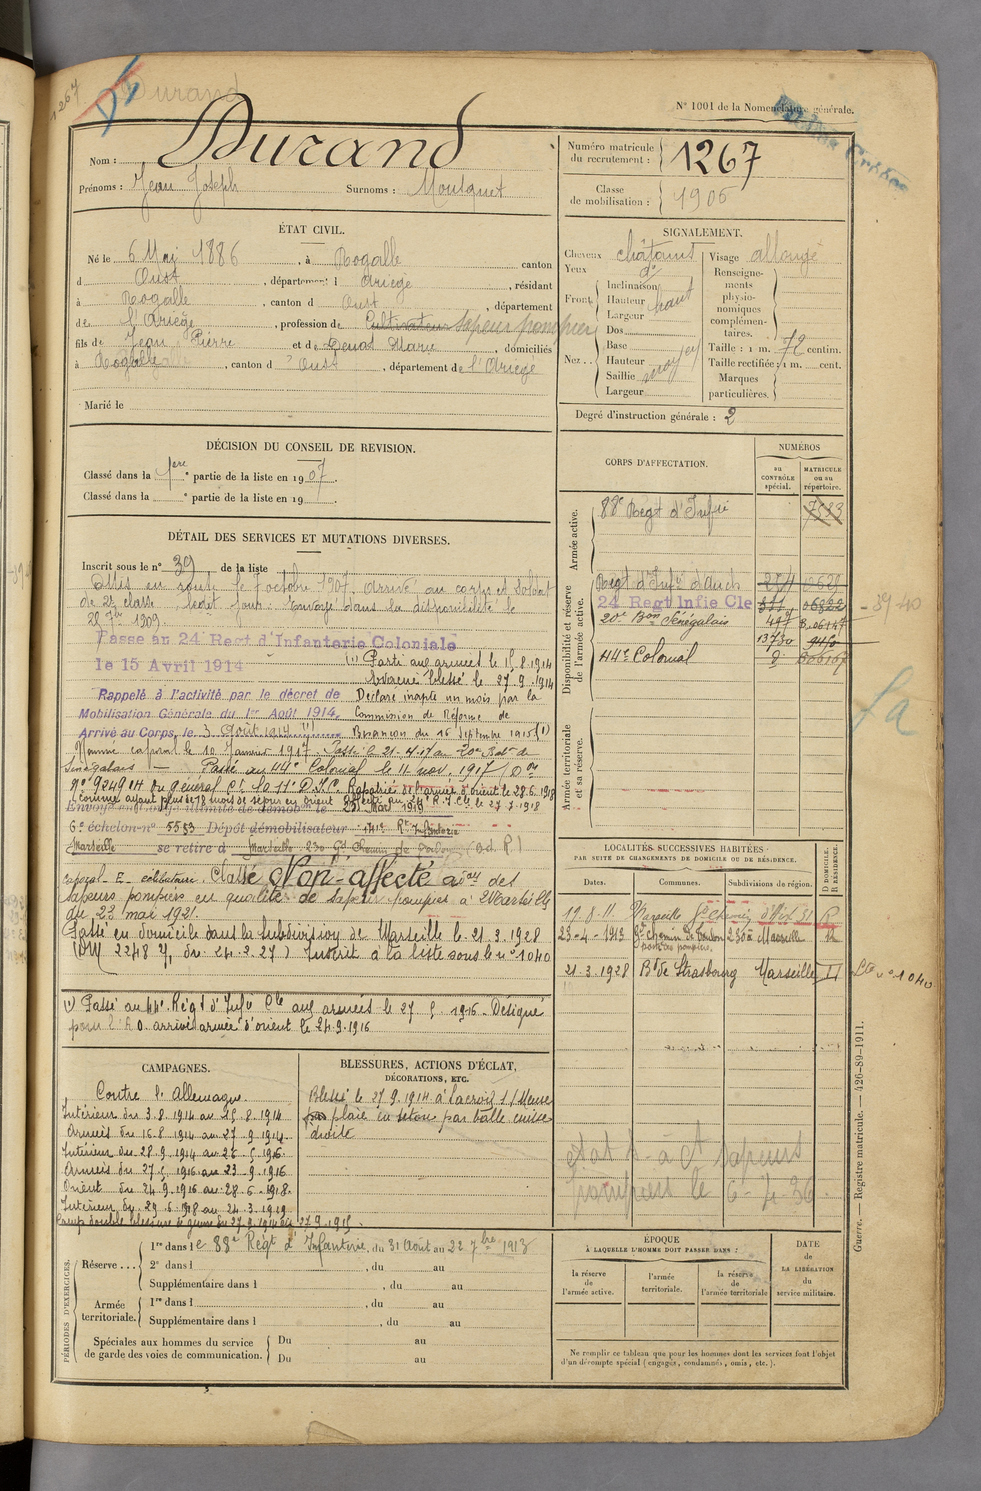 1267
Durand
N° 1001 de la Nomenclature générale.
Nom : Durand
Prénoms : Jean Joseph Surnoms : Moulquet
Numéro matricule du recrutement : 1267
Classe de mobilisation : 1906
ÉTAT CIVIL.
Né le 6 Mai 1886, à Rogalle canton
d Oust, département d Ariège, résidant
à Rogalle, canton d Oust, département
de l'Ariège, profession de Cultivateur sapeur pompier
fils de Jean Pierre et de Marie, domiciliés
à Rogalle, canton d Oust, département de l'Ariège
Marié le
SIGNALEMENT.
Cheveux châtains
Yeux d°
Front Inclinaison
Hauteur haut
Largeur
Nez Dos
Base
Hauteur moyen
Saillie
Largeur
Visage allongé
Renseignements physionomiques complémentaires.
Taille : 1 m. 72 centim.
Taille rectifiée : 1 m. cent.
Marques particulières.
Degré d'instruction générale : 2
DÉCISION DU CONSEIL DE REVISION.
Classé dans la 1ère partie de la liste en 1907.
Classé dans la e partie de la liste en 19 .
CORPS D'AFFECTATION.
NUMÉROS
au CONTRÔLE spécial.
MATRICULE ou au répertoire.
Armée active.
88e Regt d'Infrie 7583
Disponibilité et réserve de l'armée active.
Regt d'Infie d'Auch
24 Regt Infie Cle
20e Bon Sénégalais
44e Colonial
39-40
Armée territoriale et sa réserve.
DÉTAIL DES SERVICES ET MUTATIONS DIVERSES.
Inscrit sous le n° 39 de la liste
Mis en route le 7 octobre 1907. Arrivé au corps et soldat
de 2e classe ledit jour. Envoyé dans la disponibilité le
1909.
Passé au 24 Regt d'Infanterie Coloniale
le 15 Avril 1914
(1) Parti aux armées le 15.8.1914
Evacué blessé le 27.9.1914
Rappelé à l'activité par le décret de
Mobilisation Générale du 1er Août 1914.
Arrivé au Corps, le 3 Août 1914
Déclaré inapte un mois par la
Commission de Réforme de
Briançon du 16 septembre 1915 (1)
Nommé caporal le 10 Janvier 1917. Passé le 21-4-17 au 20e Bat. de
Sénégalais — Passé au 44e Colonial le 11 nov. 1917 (O
n° 9249 H du général Ct la 11e D.I.C. Rapatrié de l'armée d'orient le 28.6.1918
(comme ayant plus de 18 mois de séjour en orient le 27.7.1918
Envoyé en congé illimité de démobon le 24 Mars 1919
6e échelon n° 5553 Dépôt démobilisateur 141e Rt Infanterie
Marseille se retire à Marseille 230 Gd Chemin de Toulon
caporal - célibataire. Classé Non-affecté des
sapeurs pompiers en qualité de sapeur pompier à Marseille
du 23 mai 1921.
Passé en domicile dans la subdivision de Marseille le 21.3.1928
(DM 2248 du 24.2.27) Inscrit à la liste sous le n° 1040
(1) Passé au 44e Régt d'Infie Cle aux armées le 27.5.1916 - Désigné
pour l'A O. arrivé armée d'orient le 24.9.1916
LOCALITÉS SUCCESSIVES HABITÉES
PAR SUITE DE CHANGEMENTS DE DOMICILE OU DE RÉSIDENCE.
Dates. Communes. Subdivisions de région. D DOMICILE. R RÉSIDENCE.
19.8.11 Marseille R
23-4-1913 Gd chemin de Toulon 230 à Marseille R
21.3.1928 Bd de Strasbourg Marseille D
Lte n° 1040
CAMPAGNES.
Contre l'Allemagne.
Intérieur du 3.8.1914 au 15.8.1914
Armées du 16.8.1914 au 27.9.1914
Intérieur du 28.9.1914 au 26.5.1916
Armées du 27.5.1916 au 23.9.1916
Orient du 24.9.1916 au 28.6.1918
Intérieur du 29.6.1918 au 24.3.1919
Camp. double blessure de guerre du 27.9.1914 au 27.9.1915.
BLESSURES, ACTIONS D'ÉCLAT,
DÉCORATIONS, ETC.
Blessé le 27.9.1914 à Lacroix s/Meuse
plaie en séton par balle cuisse
droite
sapeurs
pompiers le 6-7-36
PÉRIODES D'EXERCICES.
Réserve... 1re dans le 88e Régt d'Infanterie, du 31 Août au 22 7bre 1913
2e dans l , du au
Supplémentaire dans l , du au
Armée territoriale. 1re dans l , du au
Supplémentaire dans l , du au
Spéciales aux hommes du service de garde des voies de communication. Du au
Du au
ÉPOQUE
À LAQUELLE L'HOMME DOIT PASSER DANS :
la réserve de l'armée active.
l'armée territoriale.
la réserve de l'armée territoriale
DATE DE LA LIBÉRATION du service militaire.
Ne remplir ce tableau que pour les hommes dont les services font l'objet
d'un décompte spécial (engagés, condamnés, omis, etc.).
Guerre. — Registre matricule. — 426-89-1911.